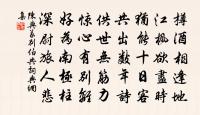 樽酒相逢地
江楓欲盡時
猶能十日客
共出數年詩
供世無筋力
驚心有別離
好為南極柱
深慰旅人悲
陳與義別伯共詞典網
集